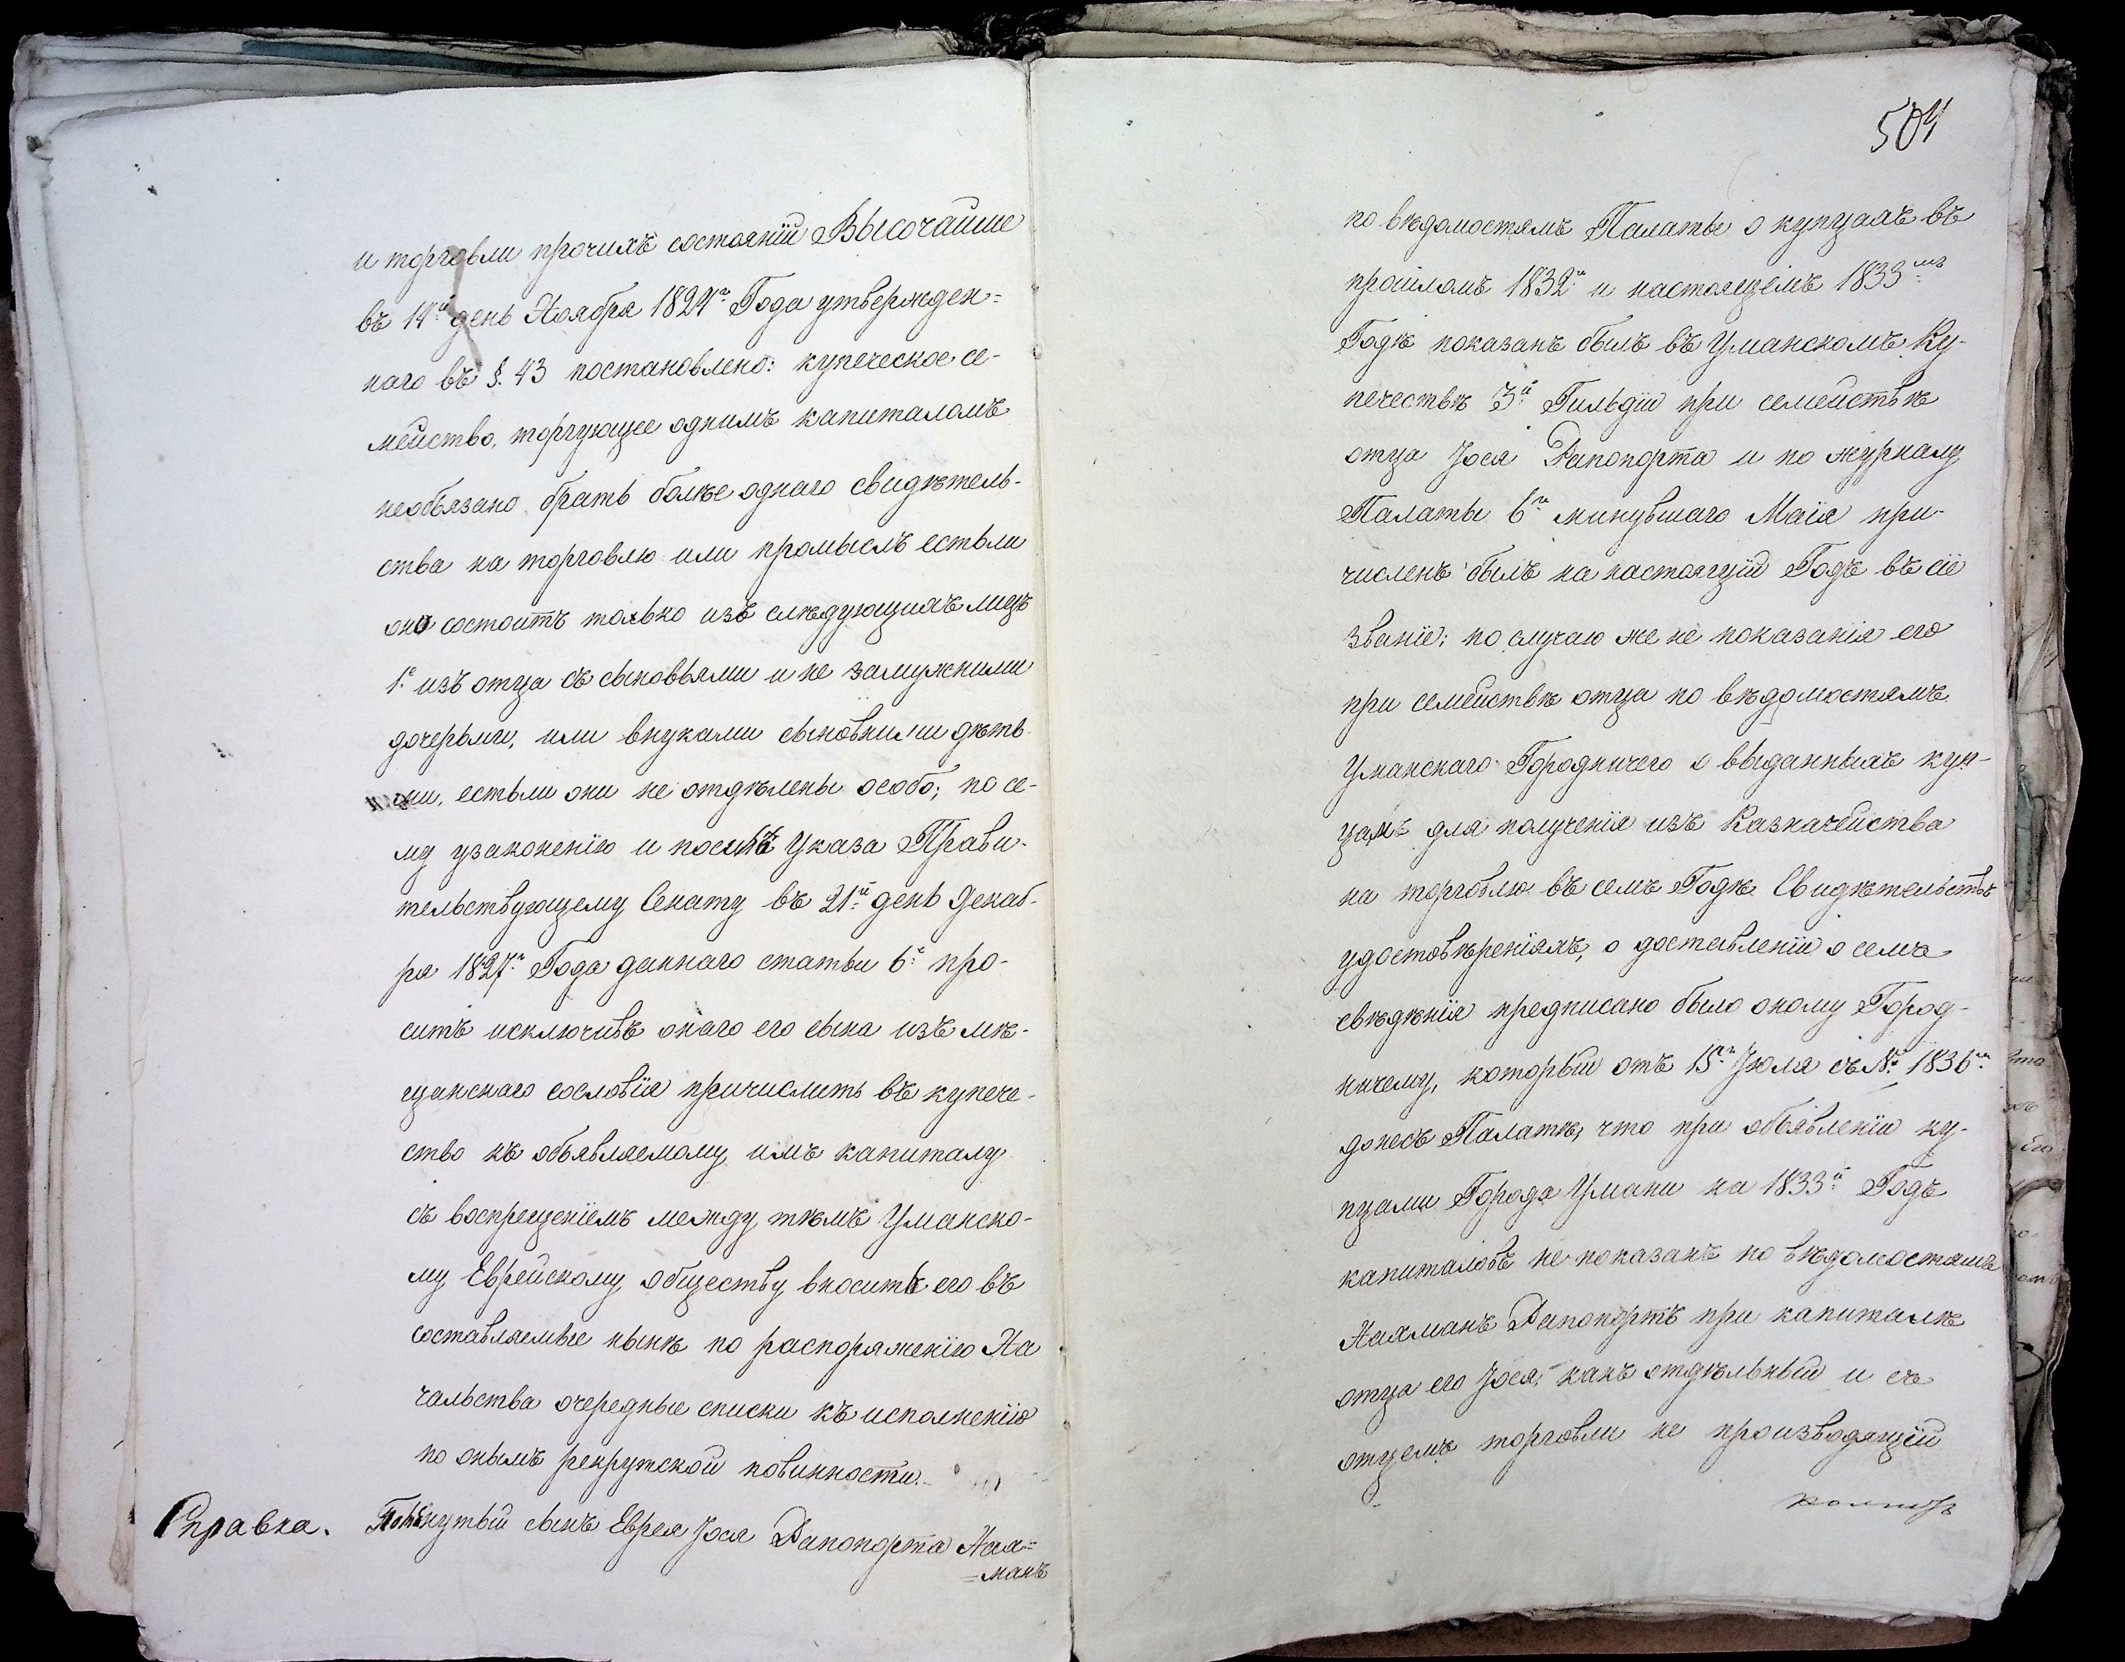 и торговли прочихъ состоянiй Высочайше
въ 14й день Ноября 1824го Года утвержден=
наго въ §. 43 постановлено: купеческое се-
мейство, торгующее однимъ капиталомъ
необязано брать болѣе однаго свидѣтель-
ства на торговлю или промыслъ естьли
оно состоитъ только изъ слѣдующихъ лицъ
1е изъ отца съ сыновьями и не замужними
дочерьми, или внуками сыновними дѣть-
ми, естьли они не отдѣлены особо; по се-
му узаконенiю и послѣ Указа Прави-
тельствующему Сенату въ 21й день Декаб-
ря 1827го Года даннаго статьи 6й про-
ситъ исключивъ онаго его сына изъ мѣ-
щанскаго сословiя причислить въ купече-
ство къ объявляемому имъ капиталу
съ воспрещенiемъ между тѣмъ Уманско-
му Еврейскому обществу вносить его въ
составляемые нынѣ по распоряженiю На
чальства очередные списки къ исполненiю
по онымъ рекрутской повинности.
Справка. Помянутый сынъ Еврея Іося Рапопорта Нах=
=манъ
504
по вѣдомостямъ Палаты о купцахъ въ
прошломъ 1832м и настоящемъ 1833мъ
Годѣ показанъ былъ въ Уманскомъ Ку-
печествѣ 3й Гильдiи при семействѣ
отца Іося Рапопорта и по журналу
Палаты 6го минувшаго Маiя при-
численъ былъ на настоящiй Годъ въ сiе
званiе; по случаю же не показанiя его
при семействѣ отца по вѣдомостямъ
Уманскаго Городничего о выданныхъ куп-
цамъ для полученiя изъ Казначейства
на торговлю въ семъ Годѣ Свидѣтельствъ
удостовѣренiяхъ, о доставленiи о семъ
свѣдѣнiя предписано было оному Город-
ничему, который отъ 15го Іюля съ № 1836м
донесъ Палатѣ, что при объявленiи ку-
пцами Города Умани на 1833й Годъ
капиталовъ не показанъ по вѣдомостямъ
Нахманъ Рапопортъ при капиталѣ
отца его Іося, какъ отдѣльный и съ
отцемъ торговли не производящiй